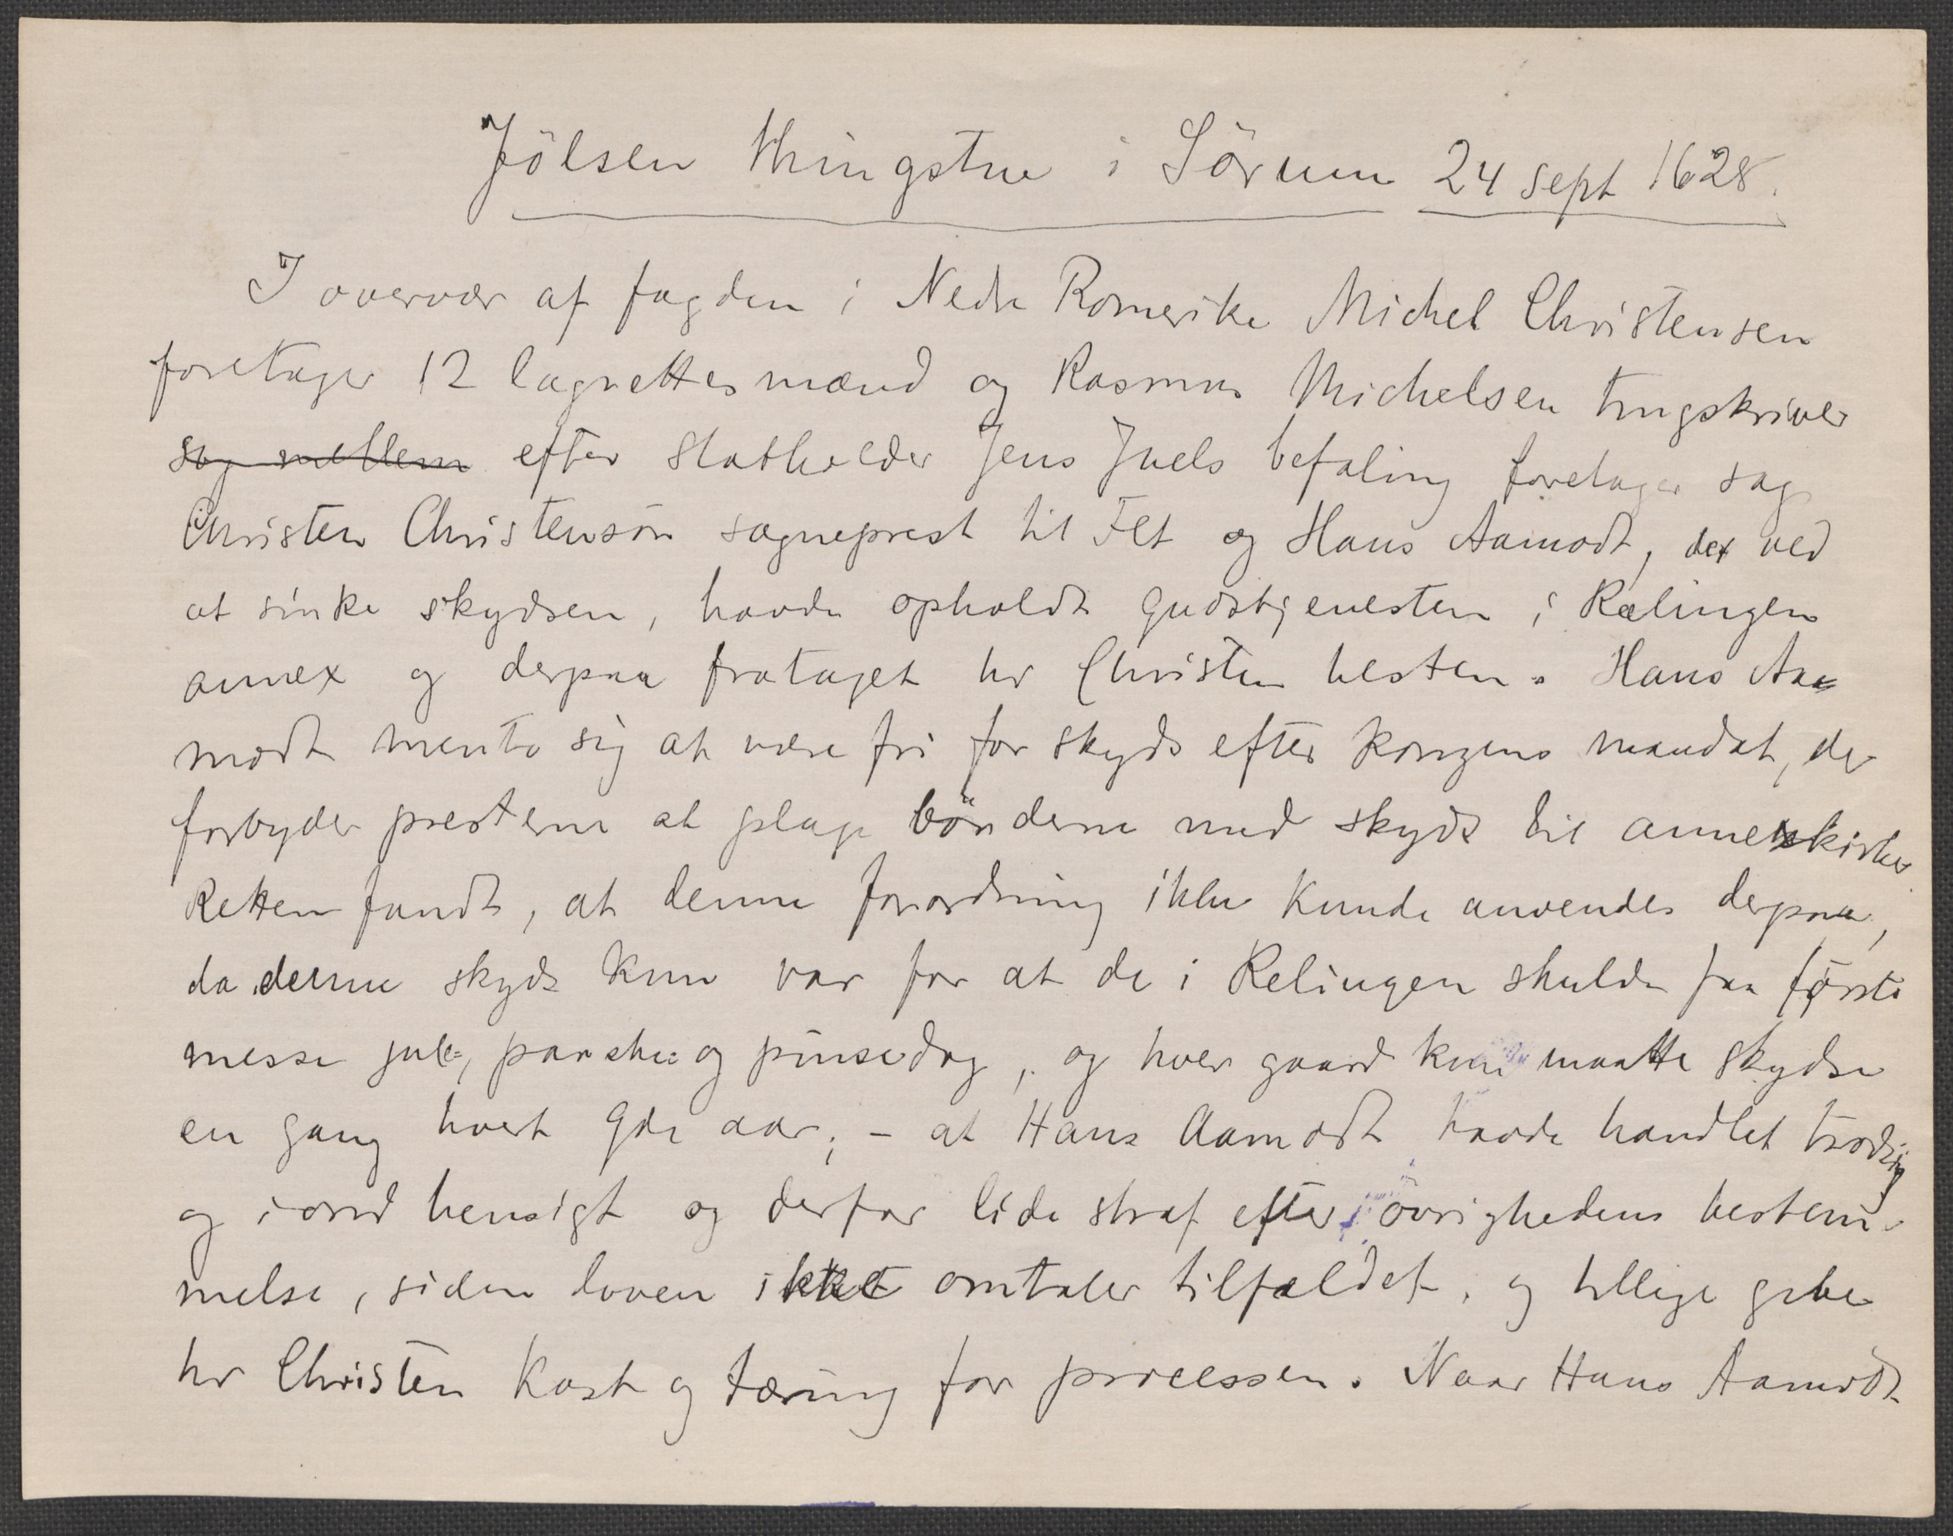 Jölsen thingstue i Sörum 24 sept 1628.
I overvær af fogden i Nedre Romerike Michel Christensen
foretager 12 lagrettesmænd og Rasmus Michelsen tingskriver
sag mellem efter statholder Jens Juels befaling foretager sag
Christen Christensön sogneprest til Fet og Hans Aamodt, der ved
at sinke skydsen, havde opholdt gudstjenesten i Rælingen
annex og derpaa frataget hr Christen hesten. Hans Aa-
modt mente sig at være fri for skyds efter kongens mandat, der
forbyder presterne at plage bönderne med skyds til annexkirker
Retten fandt, at denne forordning ikke kunde anvendes derpaa,
da denne skyds kun var for at de i Relingen skulde faa förste
messe jule-, paaske- og pinsedag, og hver gaard kun maatte skydse
en gang hvert 9de aar; - at Hans Aamodt havde handlet trodsig
og i ond hensigt og derfor lide straf efter övrighedens bestem-
melse, siden loven ikke omtaler tilfældet, og tillige give
hr Christen kost og tæring for processen. Naar Hans Aamodt